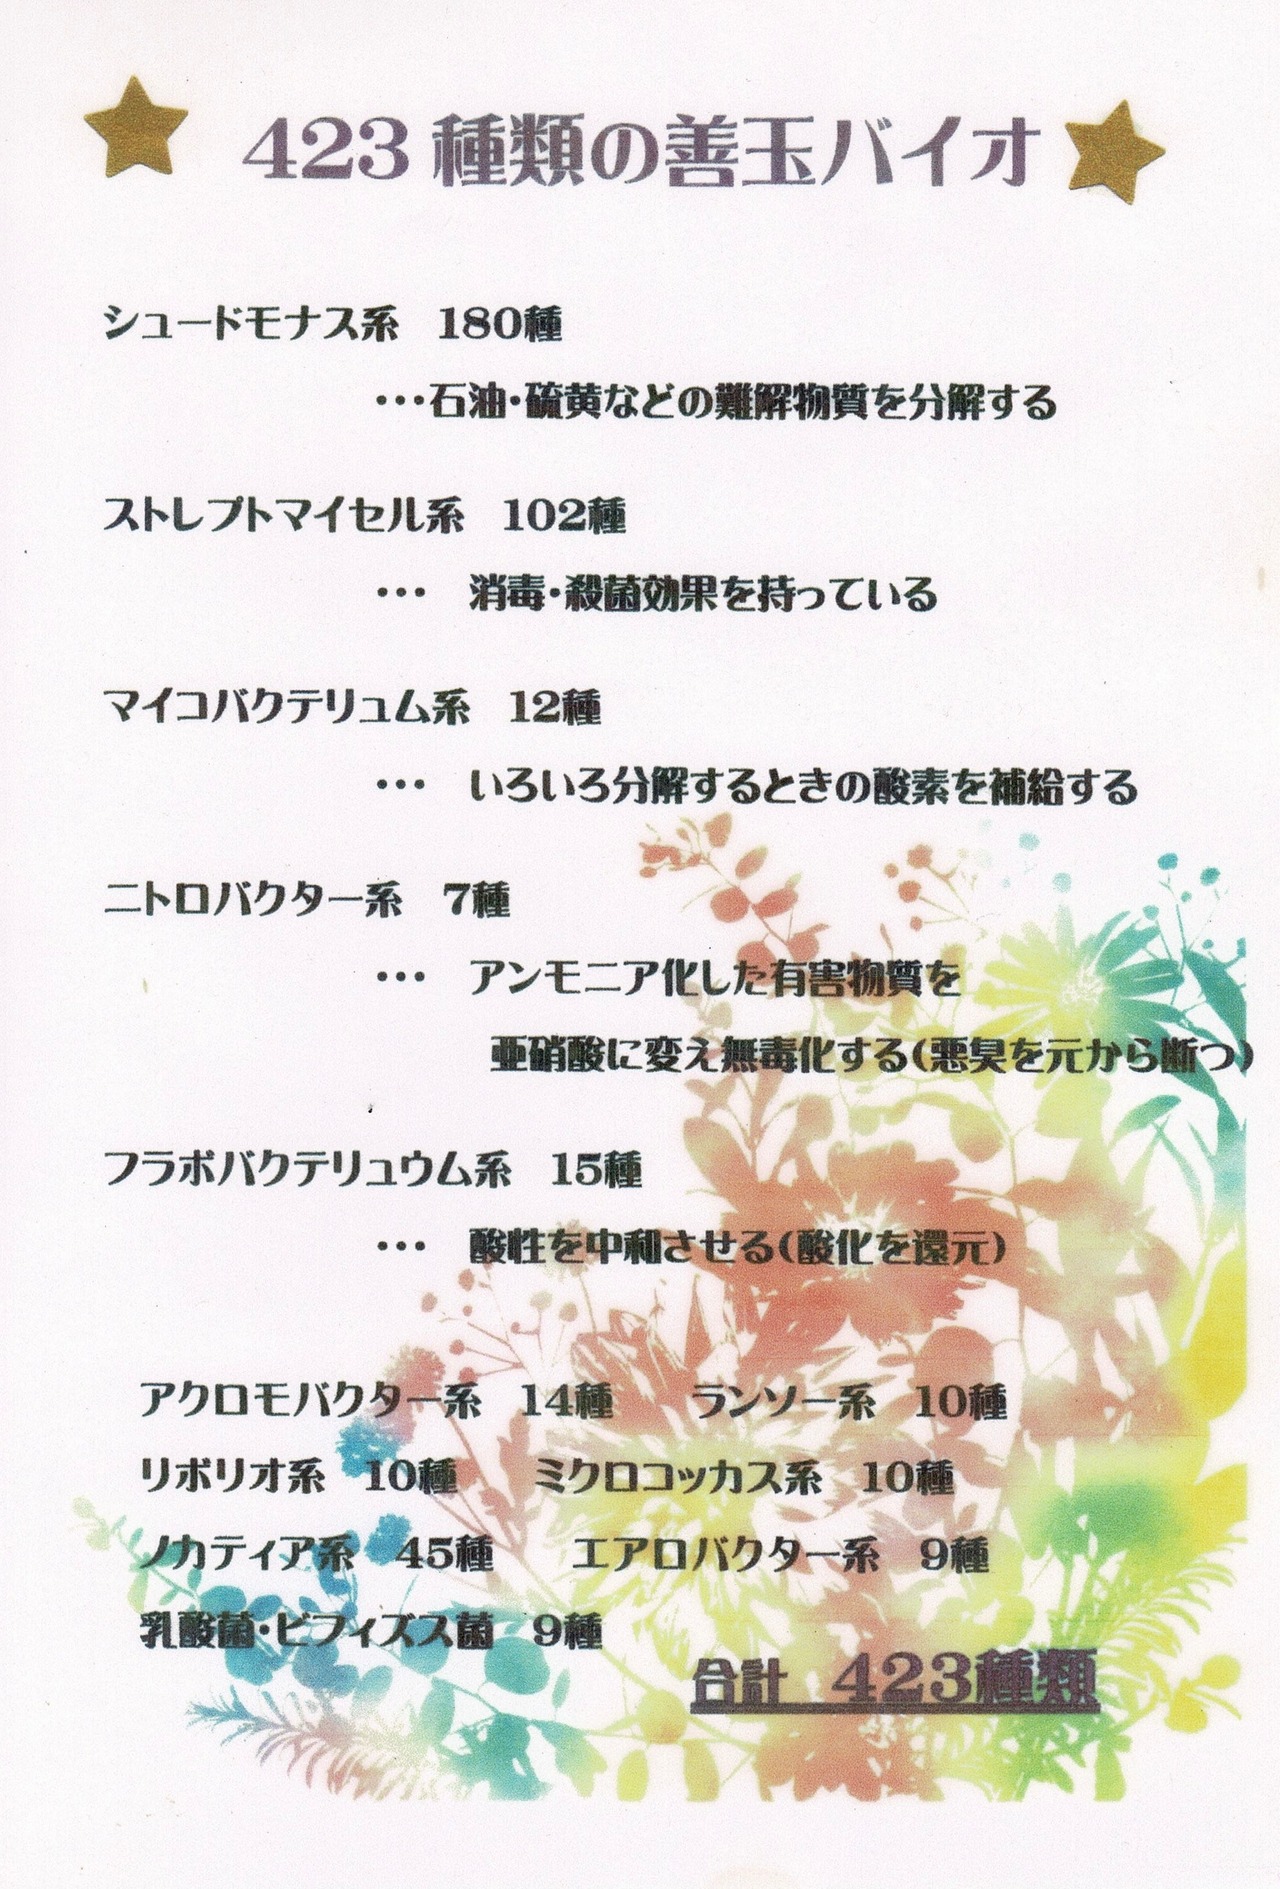 423種類の善玉バイオ
シュードモナス系　180種
…石油・硫黄などの難解物質を分解する
ストレプトマイセル系　102種
…　消毒・殺菌効果を持っている
マイコバクテリュム系　12種
…　いろいろ分解するときの酸素を補給する
ニトロバクター系　7種
…　アンモニア化した有害物質を
亜硝酸に変え無毒化する(悪臭を元から断つ)
フラボバクテリュウム系　15種
…　酸性を中和させる(酸化を還元)
アクロモバクター系　14種　　ランソー系　10種
リポリオ系　10種　　ミクロコッカス系　10種
ノカティア系　45種　　エアロバクター系　9種
乳酸菌・ビフィズス菌　9種
合計　423種類